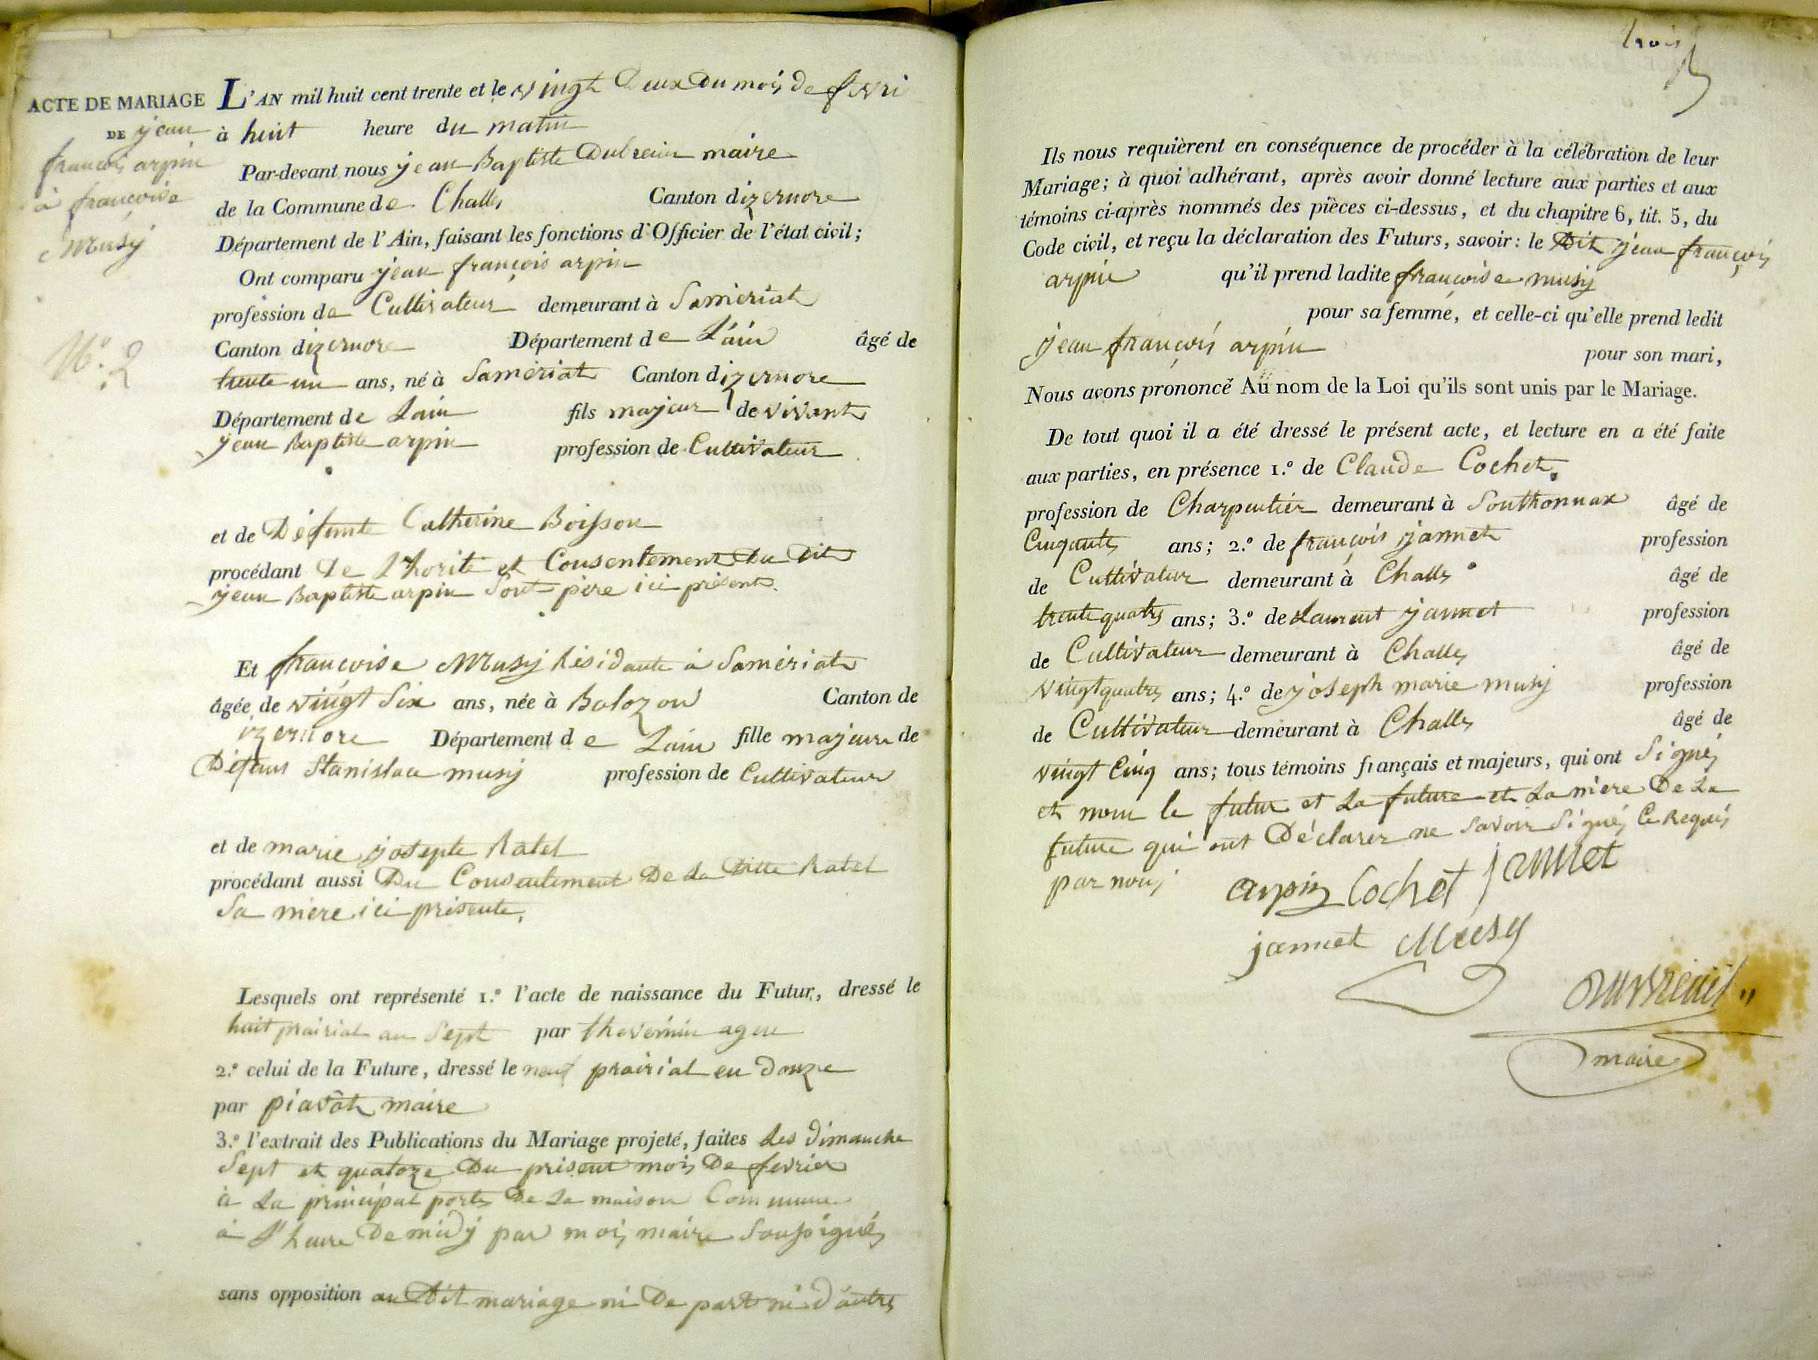 ACTE DE MARIAGE
DE jean
francois arpin
à francoise
Musy
N.º 2
L'AN mil huit cent trente et le vingt Deux Du mois de fevri
à huit heure du matin
Par-devant nous jean Baptiste Dubreuil maire
de la Commune de Challes Canton d'izernore
Département de l'Ain, faisant les fonctions d'Officier de l'état civil;
Ont comparu jean françois arpin
profession de Cultivateur demeurant à Samériat
Canton dizernore Département de Lain âgé de
trente un ans, né à Samériat Canton dizernore
Département de Lain fils majeur de vivant
jean Baptiste arpin profession de Cultivateur
et de Défunte Catherine Boisson
procédant De et Consentement Du Dit
jean Baptiste arpin Son père ici présent
Et francoise Musy Résidante à Samériat
âgée de vingt Six ans, née à Bolozon Canton de
izernore Département de Lain fille majeure de
Défunt Stanislace musy profession de Cultivateur
et de marie josepte Ratel
procédant aussi Du Consentement De La Ditte Ratel
Sa mère ici présente,
Lesquels ont représenté 1.º l'acte de naissance du Futur, dressé le
huit prairial an Sept par thevenin agen
2.º celui de la Future, dressé le neuf prairial en douze
par piavot maire
3.º l'extrait des Publications du Mariage projeté, faites Les dimanche
Sept et quatoze Du présent mois De fevrier
à La principal porte De La maison Commune
à l'heure De midy par moi, maire Sousigné
sans opposition au Dit mariage ni De part ni d'autre
trois
Ils nous requièrent en conséquence de procéder à la célébration de leur
Mariage; à quoi adhérant, après avoir donné lecture aux parties et aux
témoins ci-après nommés des pièces ci-dessus, et du chapitre 6, tit. 5, du
Code civil, et reçu la déclaration des Futurs, savoir: le Dit jean françois
arpin qu'il prend ladite françoise musy
pour sa femme, et celle-ci qu'elle prend ledit
jean françois arpin pour son mari,
Nous avons prononcé Au nom de la Loi qu'ils sont unis par le Mariage.
De tout quoi il a été dressé le présent acte, et lecture en a été faite
aux parties, en présence 1.º de Claude Cochet,
profession de Charpentier demeurant à Southonnax âgé de
Cinquante ans; 2.º de françois jannet profession
de Cultivateur demeurant à Challes âgé de
trente quatre ans; 3.º de Laurent jannet profession
de Cultivateur demeurant à Challes âgé de
vingt quatre ans; 4.º de joseph marie musy profession
de Cultivateur demeurant à Challes âgé de
vingt Cinq ans; tous témoins français et majeurs, qui ont Signés
et nom le futur et La future et La mère De La
future qui ont Déclarer ne Savoir Signés Ce Requis
par nous
arpin Cochet jannet
jannet Musy
Dubreuil
maire